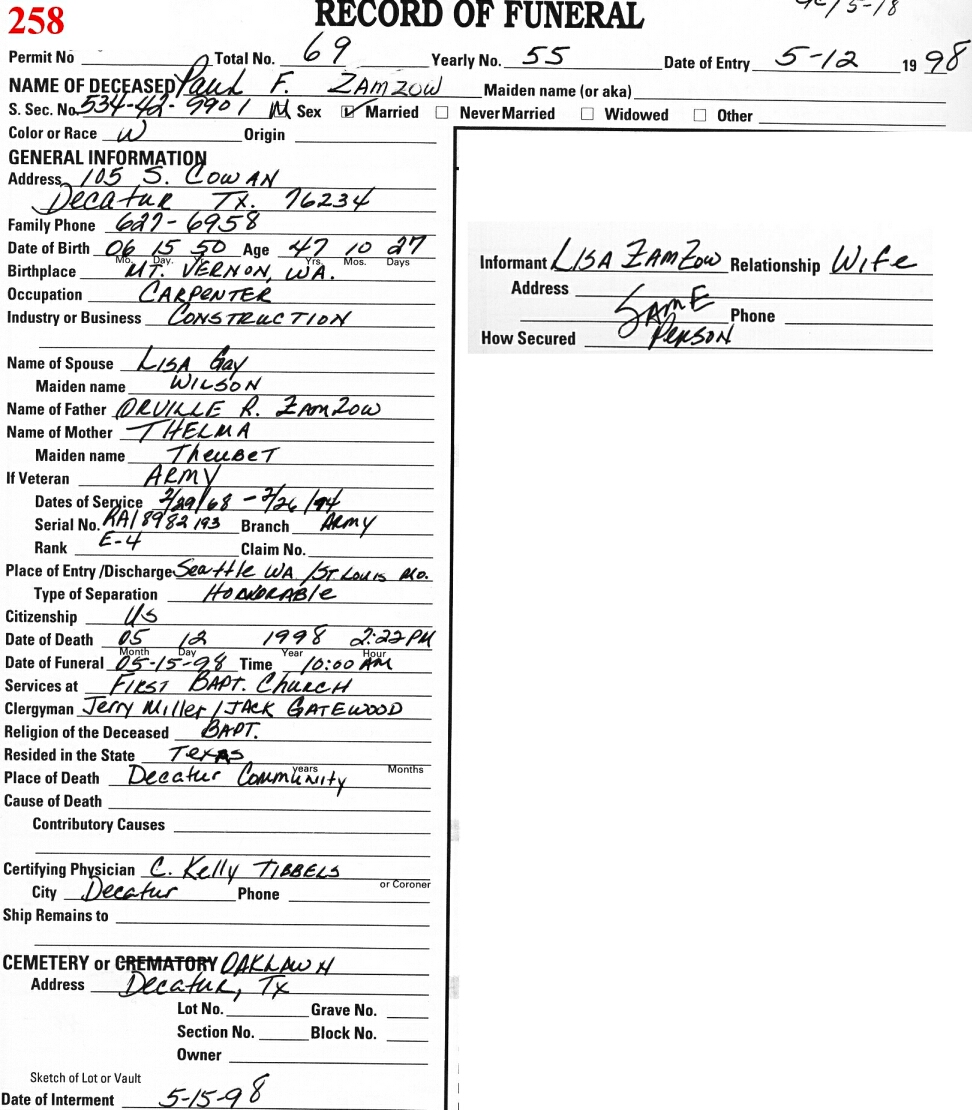 258
RECORD OF FUNERAL
Permit No Total No. 69 Yearly No. 55 Date of Entry 5-12 1998
NAME OF DECEASED Paul F. ZAMZOW Maiden name (or aka)
S. Sec. No. 534-42-9901 M Sex ☑ Married ☐ Never Married ☐ Widowed ☐ Other
Color or Race W Origin
GENERAL INFORMATION
Address 105 S. COWAN
Decatur Tx. 76234
Family Phone 627-6958
Date of Birth 06 15 50 Age 47 10 27
Mo. Day. Yr. Yrs. Mos. Days
Birthplace MT. VERNON, WA.
Occupation CARPENTER
Industry or Business CONSTRUCTION
Name of Spouse LISA Gay
Maiden name WILSON
Name of Father ORVILLE R. ZAMZOW
Name of Mother THELMA
Maiden name TheubeT
If Veteran ARMY
Dates of Service 2/29/68 - 2/26/74
Serial No. RA18982193 Branch ARMY
Rank E-4 Claim No.
Place of Entry /Discharge Seattle WA /ST Louis Mo.
Type of Separation HONORABle
Citizenship US
Date of Death 05 12 1998 2:22 PM
Month Day Year Hour
Date of Funeral 05-15-98 Time 10:00 AM
Services at FIRST BAPT. Church
Clergyman Jerry Miller / JACK GATEWOOD
Religion of the Deceased BAPT.
Resided in the State Texas
years Months
Place of Death Decatur Community
Cause of Death
Contributory Causes
Certifying Physician C. Kelly TIBBELS
or Coroner
City Decatur Phone
Ship Remains to
CEMETERY or CREMATORY OAKLAWN
Address Decatur, Tx
Lot No. Grave No.
Section No. Block No.
Owner
Sketch of Lot or Vault
Date of Interment 5-15-98
Informant LISA ZAMZOW Relationship Wife
Address
SAME Phone
How Secured PERSON